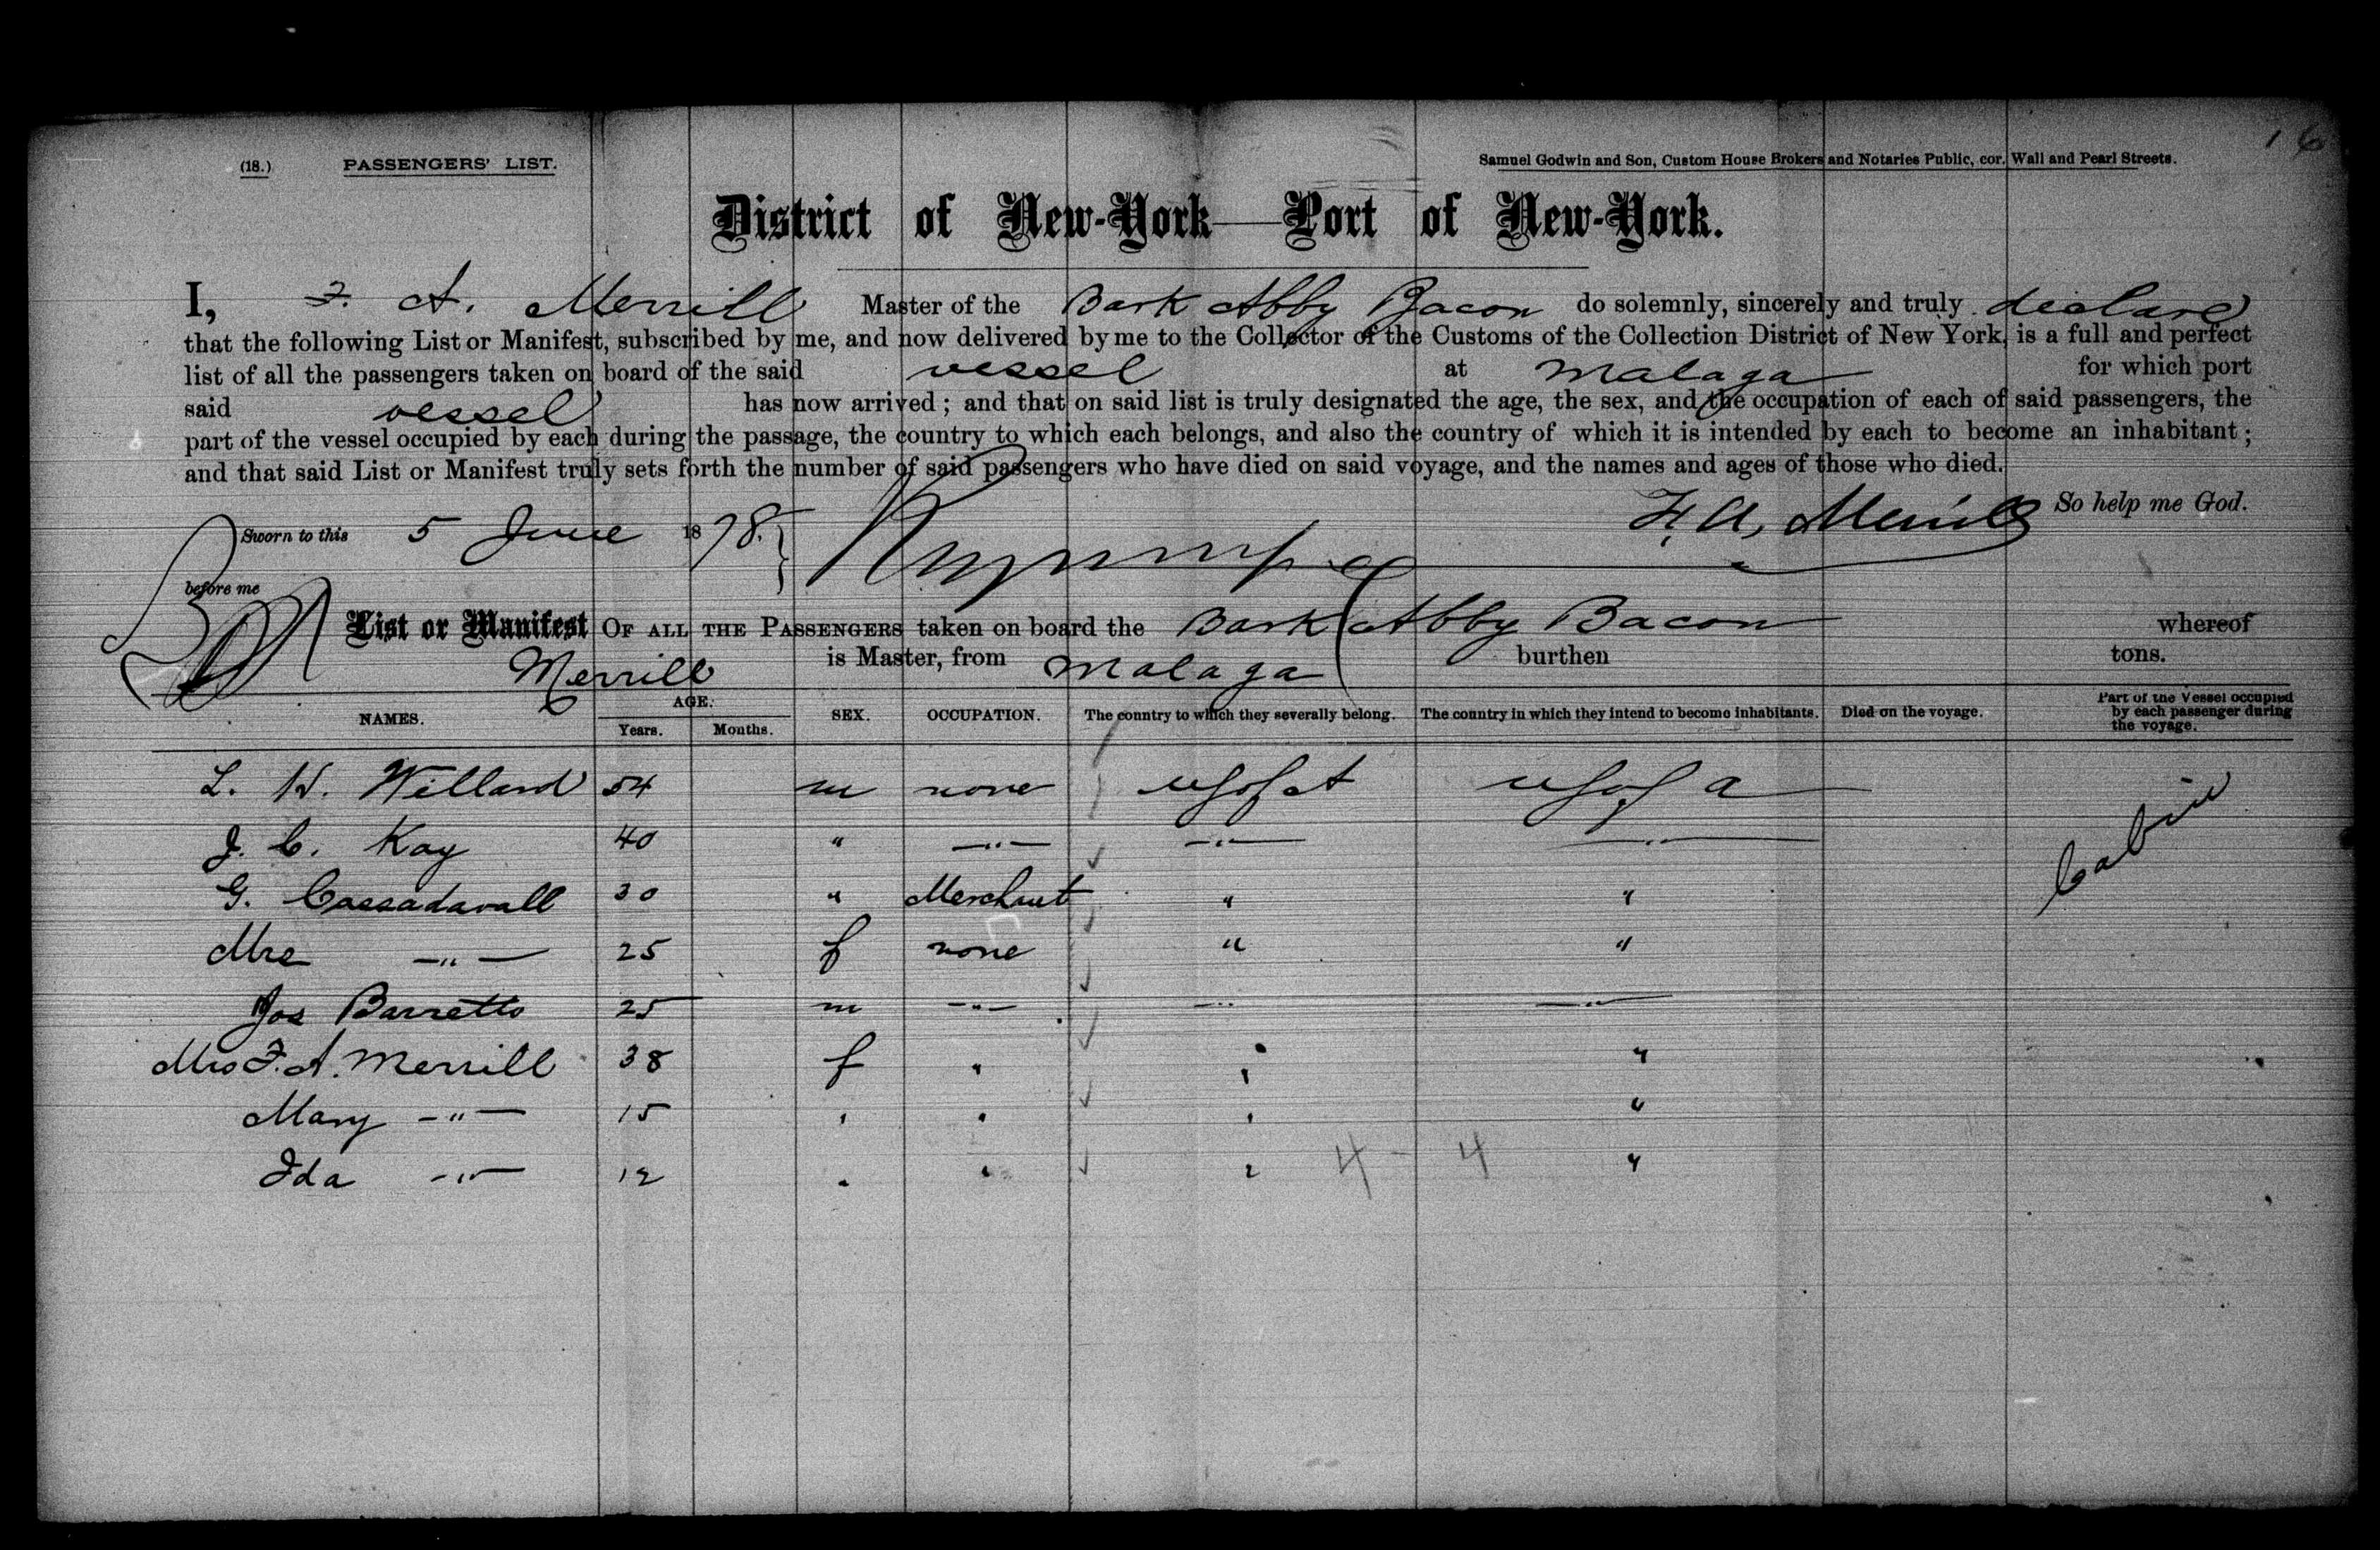 16
(18.) PASSENGERS' LIST. Samuel Godwin and Son, Custom House Brokers and Notaries Public, cor. Wall and Pearl Streets.
District of New-York—Port of New-York.
I, F. A. Merrill Master of the Bark Abby Bacon do solemnly, sincerely and truly declare
that the following List or Manifest, subscribed by me, and now delivered by me to the Collector of the Customs of the Collection District of New York, is a full and perfect
list of all the passengers taken on board of the said vessel at Malaga for which port
said vessel has now arrived; and that on said list is truly designated the age, the sex, and the occupation of each of said passengers, the
part of the vessel occupied by each during the passage, the country to which each belongs, and also the country of which it is intended by each to become an inhabitant;
and that said List or Manifest truly sets forth the number of said passengers who have died on said voyage, and the names and ages of those who died.
So help me God.
Sworn to this 5 June 1878. F. A. Merrill
before me
List or Manifest OF ALL THE PASSENGERS taken on board the Bark Abby Bacon whereof
Merrill is Master, from Malaga burthen tons.
NAMES. AGE. Years. Months. SEX. OCCUPATION. The country to which they severally belong. The country in which they intend to become inhabitants. Died on the voyage. Part of the Vessel occupied by each passenger during the voyage.
L. H. Willard 54 m none U S of A U S of A Cabin
J. C. Kay 40 " —"— —"— —"—
G. Cassadavall 30 " Merchant " "
Mrs —"— 25 f none " "
Jos Barretto 25 m —"— —"— —"—
Mrs F. A. Merrill 38 f " " "
Mary —"— 15 " " " "
Ida —"— 12 " " " 4 - 4 "